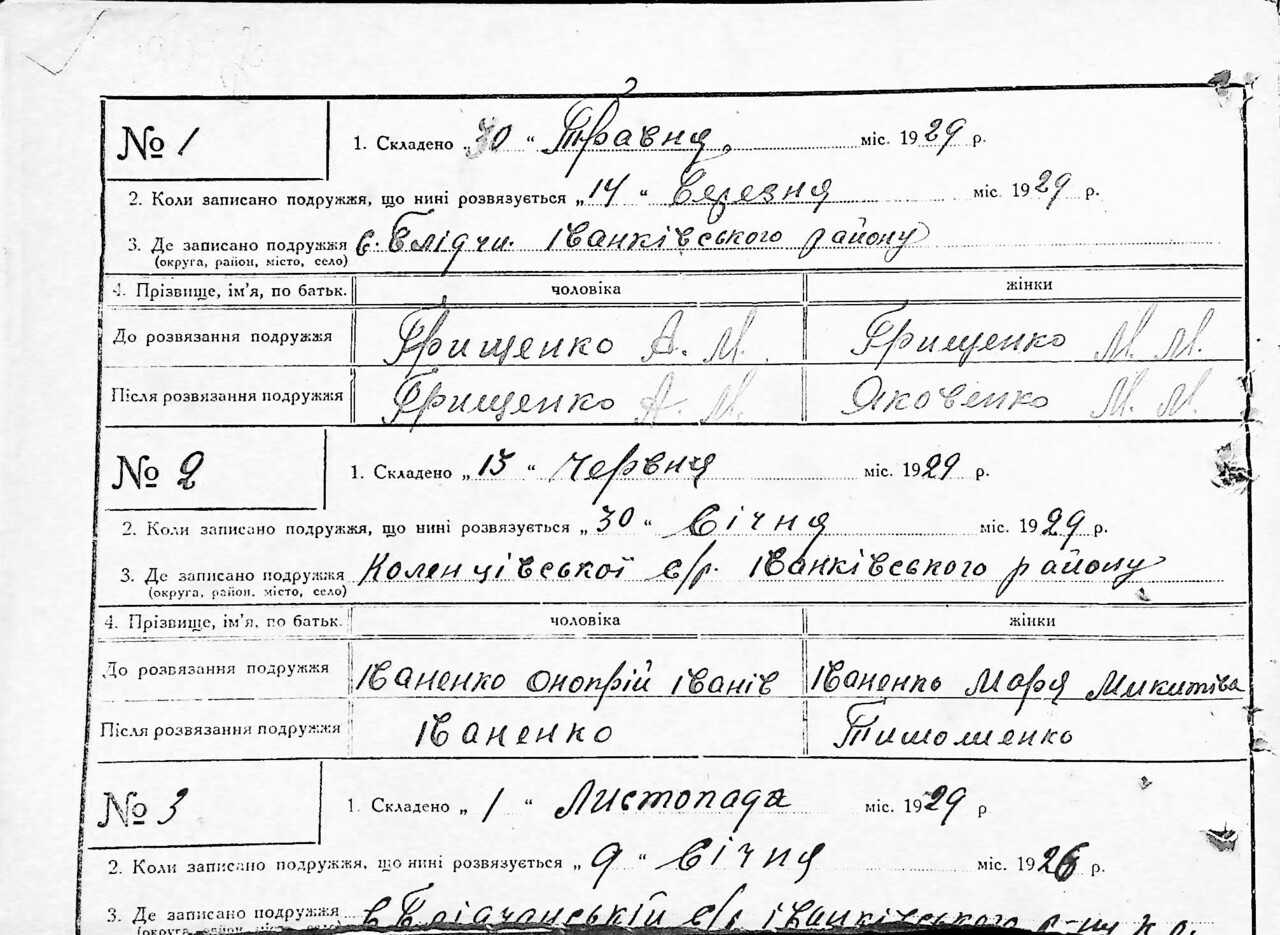 № 1
1. Складено „30“ Травня міс. 1929 р.
2. Коли записано подружжя, що нині розвязується „14“ Березня міс. 1929 р.
3. Де записано подружжя с. Блідчи. Іванківського району
(округа, район, місто, село)
4. Прізвище, ім'я, по батьк. чоловіка жінки
До розвязання подружжя Грищенко А. М. Грищенко М. М.
Після розвязання подружжя Грищенко А. М. Яковенко М. М.
№ 2
1. Складено „15“ Червня міс. 1929 р.
2. Коли записано подружжя, що нині розвязується „30“ Січня міс. 1929 р.
3. Де записано подружжя Коленцівської с/р. Іванківського району
(округа, район, місто, село)
4. Прізвище, ім'я, по батьк. чоловіка жінки
До розвязання подружжя Іваненко Онопрій Іванів Іваненко Маря Микитіва
Після розвязання подружжя Іваненко Тишоменко
№ 3
1. Складено „1“ Листопада міс. 1929 р
2. Коли записано подружжя, що нині розвязується „9“ Січня міс. 1926 р.
3. Де записано подружжя в Блідчанській с/р Іванківського р-ну